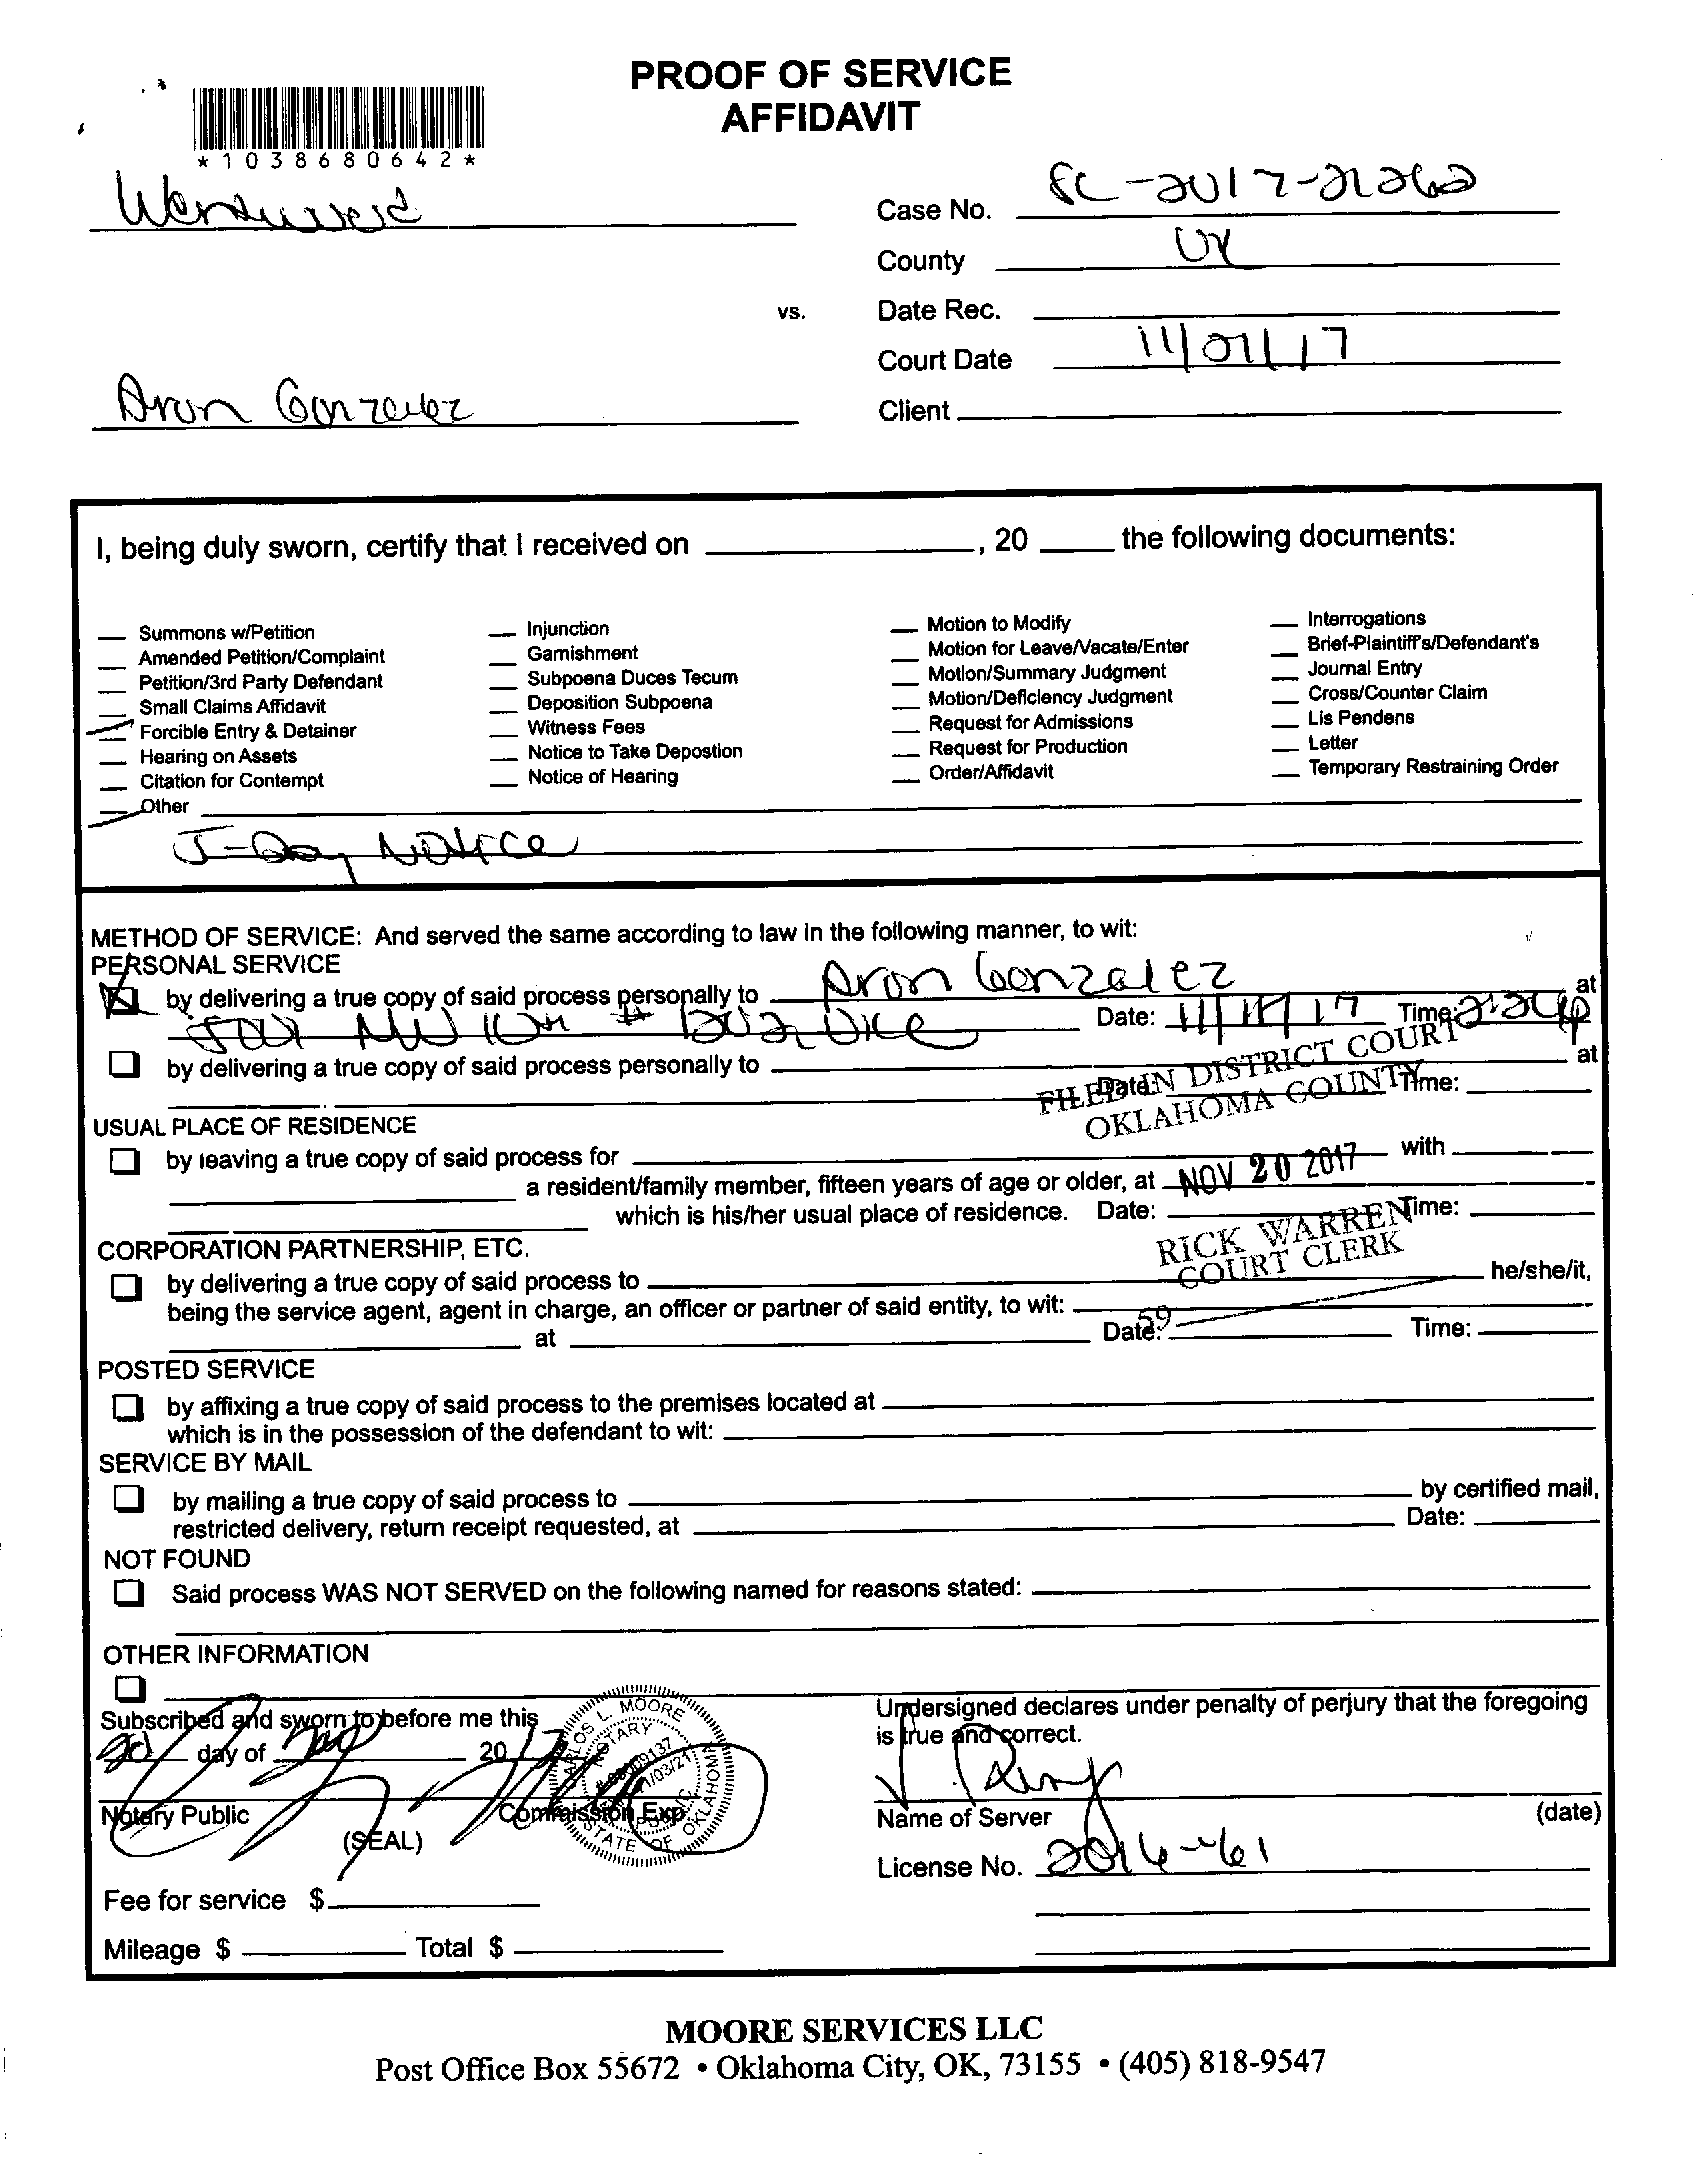 PROOF OF SERVICE
AFFIDAVIT
*1038680642*
Case No. SC-2017-21262
County
vs.
Date Rec.
Court Date
Aron Gonzalez
Client
I, being duly sworn, certify that I received on , 20 the following documents:
Summons w/Petition
Amended Petition/Complaint
Petition/3rd Party Defendant
Small Claims Affidavit
Forcible Entry & Detainer
Hearing on Assets
Citation for Contempt
Other
Injunction
Garnishment
Subpoena Duces Tecum
Deposition Subpoena
Witness Fees
Notice to Take Depostion
Notice of Hearing
Motion to Modify
Motion for Leave/Vacate/Enter
Motion/Summary Judgment
Motion/Deficiency Judgment
Request for Admissions
Request for Production
Order/Affidavit
Interrogations
Brief-Plaintiff's/Defendant's
Journal Entry
Cross/Counter Claim
Lis Pendens
Letter
Temporary Restraining Order
Day Notice
METHOD OF SERVICE: And served the same according to law in the following manner, to wit:
PERSONAL SERVICE
by delivering a true copy of said process personally to Aron Gonzalez at
NW 10th # Date: Time:
by delivering a true copy of said process personally to at
Date: Time:
FILED IN DISTRICT COURT
OKLAHOMA COUNTY
USUAL PLACE OF RESIDENCE
by leaving a true copy of said process for with
a resident/family member, fifteen years of age or older, at
NOV 20 2017
which is his/her usual place of residence. Date: Time:
RICK WARREN
COURT CLERK
CORPORATION PARTNERSHIP, ETC.
by delivering a true copy of said process to he/she/it,
being the service agent, agent in charge, an officer or partner of said entity, to wit:
59
at Date: Time:
POSTED SERVICE
by affixing a true copy of said process to the premises located at
which is in the possession of the defendant to wit:
SERVICE BY MAIL
by mailing a true copy of said process to by certified mail,
restricted delivery, return receipt requested, at Date:
NOT FOUND
Said process WAS NOT SERVED on the following named for reasons stated:
OTHER INFORMATION
Subscribed and sworn to before me this
day of 20
Notary Public Commission Exp.
(SEAL)
CARLOS L. MOORE
NOTARY
PUBLIC
STATE OF OKLAHOMA
Fee for service $
Mileage $ Total $
Undersigned declares under penalty of perjury that the foregoing
is true and correct.
Name of Server (date)
License No. 2016-61
MOORE SERVICES LLC
Post Office Box 55672 • Oklahoma City, OK, 73155 • (405) 818-9547